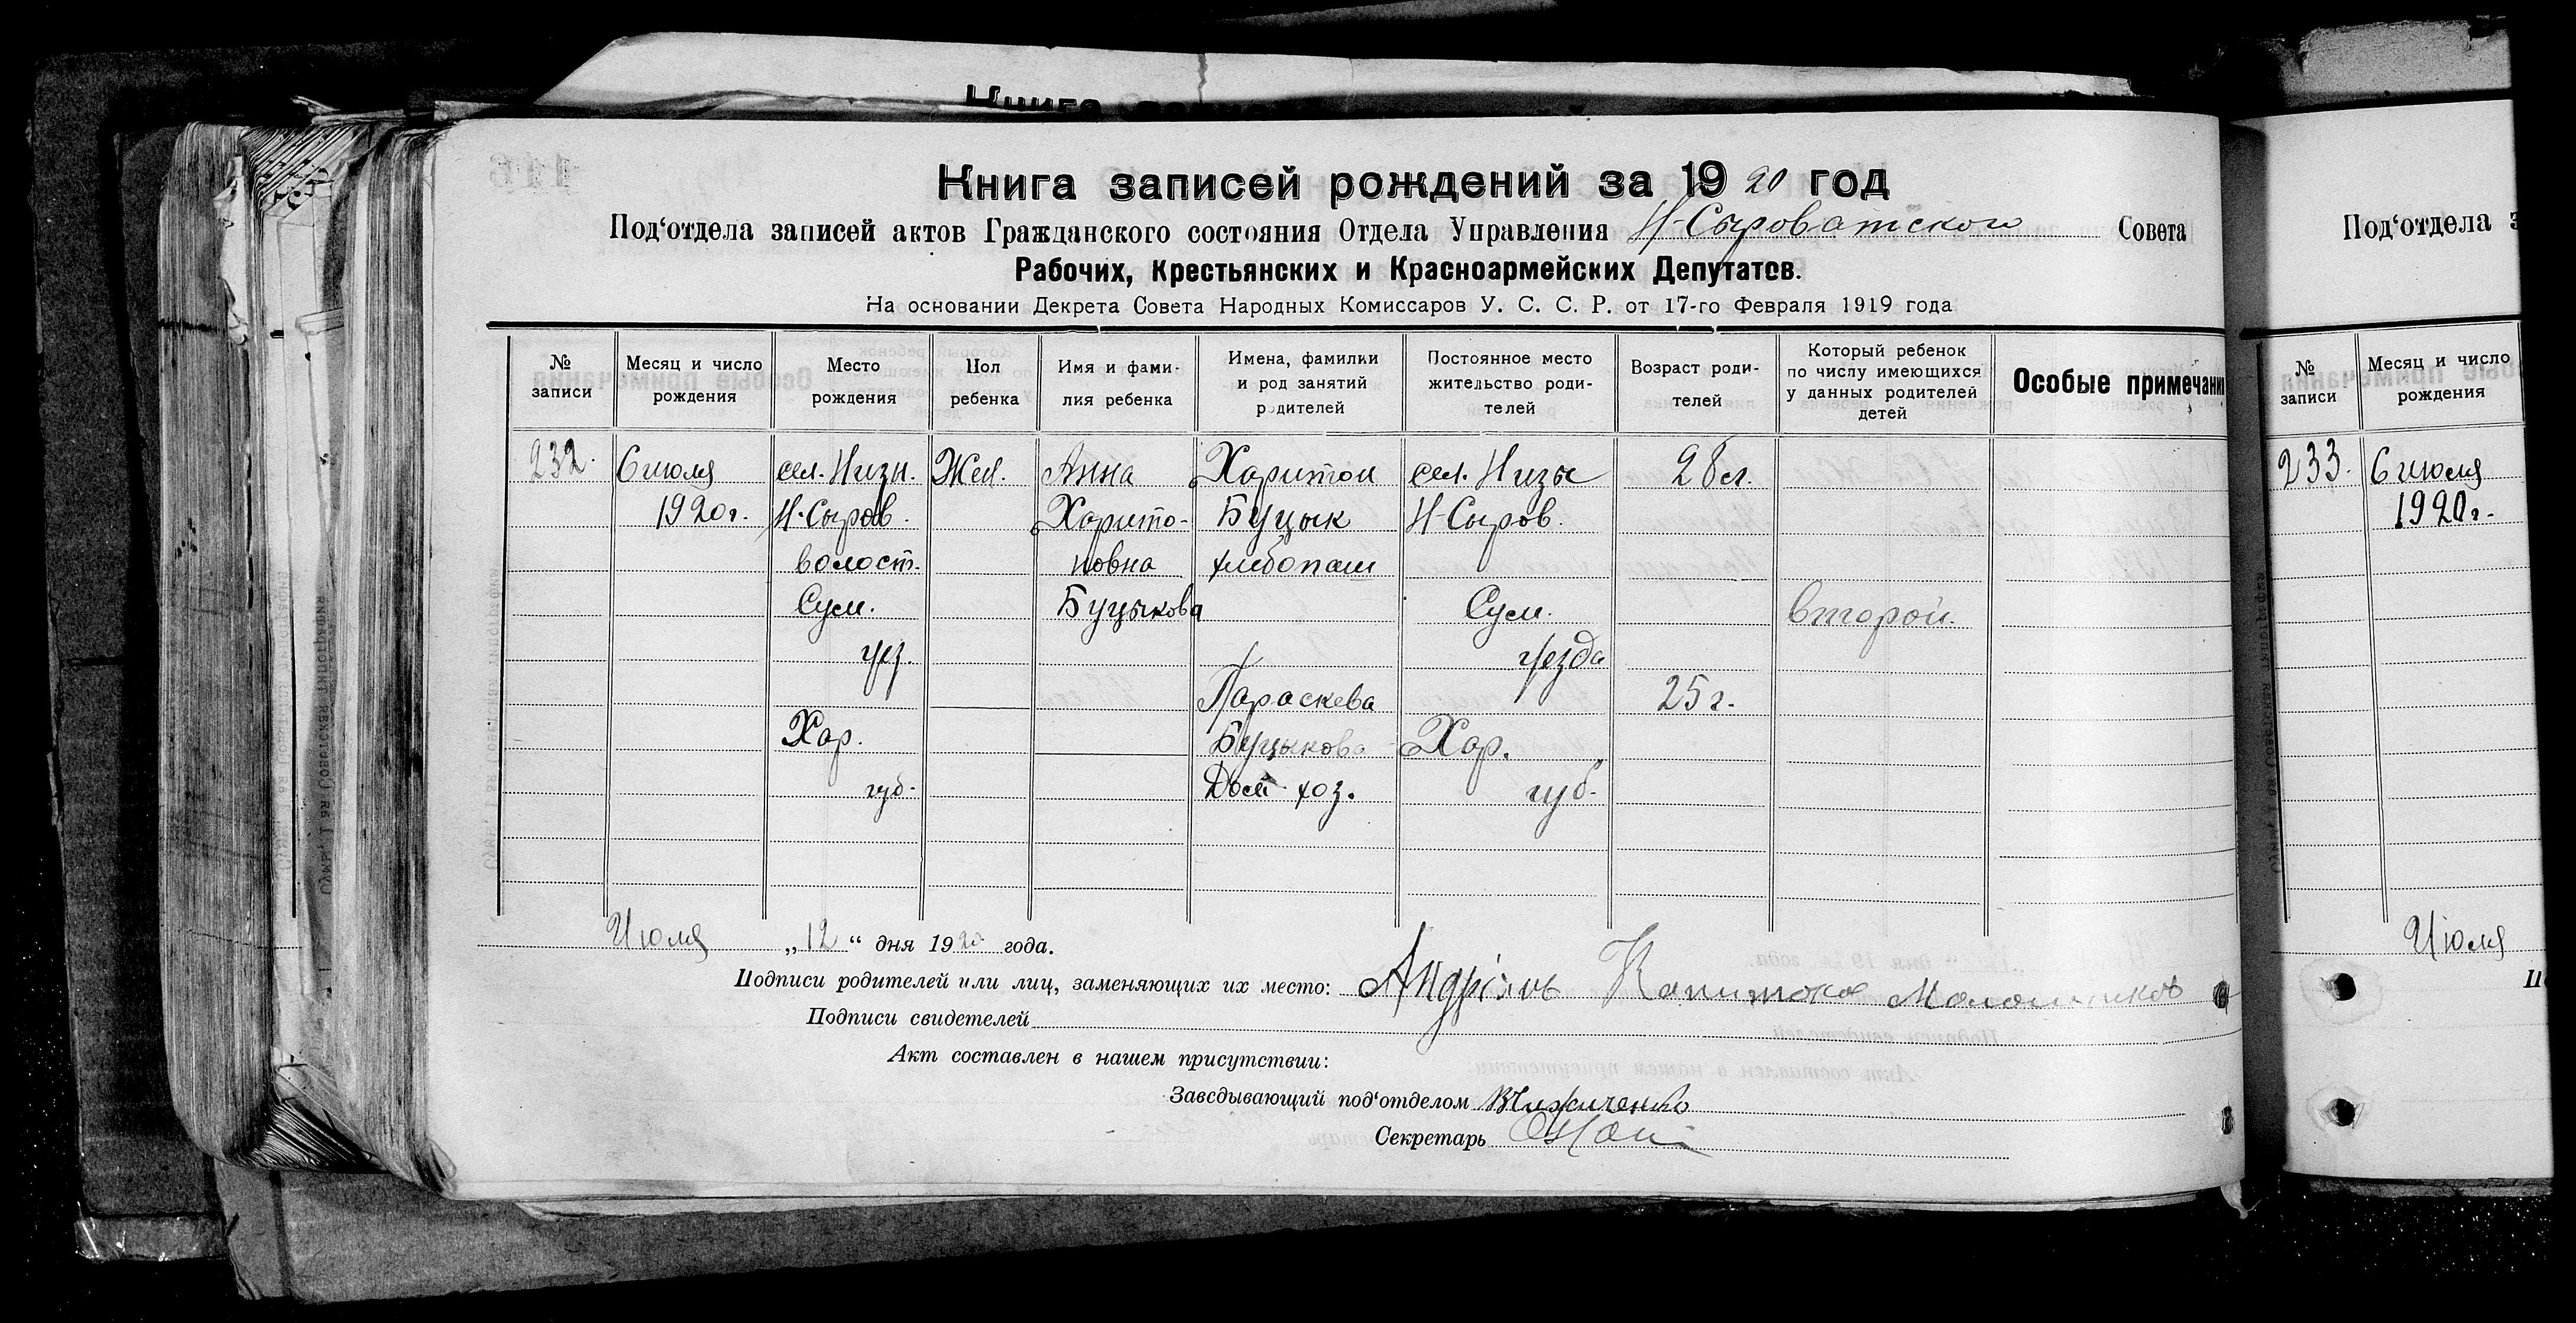 Книга
Книга записей рождений за 1920 год
Под‘отдела записей актов Гражданского состояния Отдела Управления Н-Сыроватского Совета
Рабочих, Крестьянских и Красноармейских Депутатов.
На основании Декрета Совета Народных Комиссаров У. С. С. Р. от 17-го Февраля 1919 года
№ записи
Месяц и число рождения
Место рождения
Пол ребенка
Имя и фами-
лия ребенка
Имена, фамилки
и род занятий
родителей
Постоянное место
жительство роди-
телей
Возраст роди-
телей
Который ребенок
по числу имеющихся
у данных родителей
детей
Особые примечания
232. 6 июля сел. Низы. Жен. Анна Харитон сел. Низы 28 л.
1920 г. Н-Сыров. Харито- Буцык Н-Сыров.
волост. новна хлебопаш
Сум. Буцыкова Сум. второй.
уез. уезда
Параскева 25 г.
Хар. Буцыкова Хар.
губ. Дом. хоз. губ.
Июля „12“ дня 1920 года.
Подписи родителей или лиц, заменяющих их место:
Подписи свидетелей
Акт составлен в нашем присутствии:
Заведывающий под‘отделом
Секретарь
Под‘отдела з
№ записи
Месяц и число рождения
233. 6 июля
1920 г.
Июля